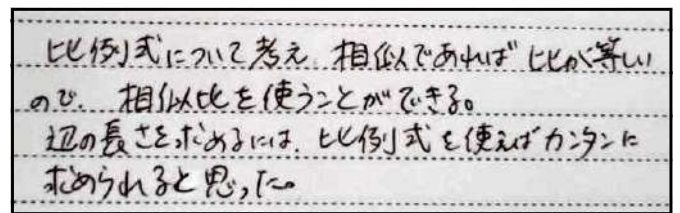 比例式について考え、相似であれば比が等しい
ので、相似比を使うことができる。
辺の長さを求めるには、比例式を使えばカンタンに
求められると思った。